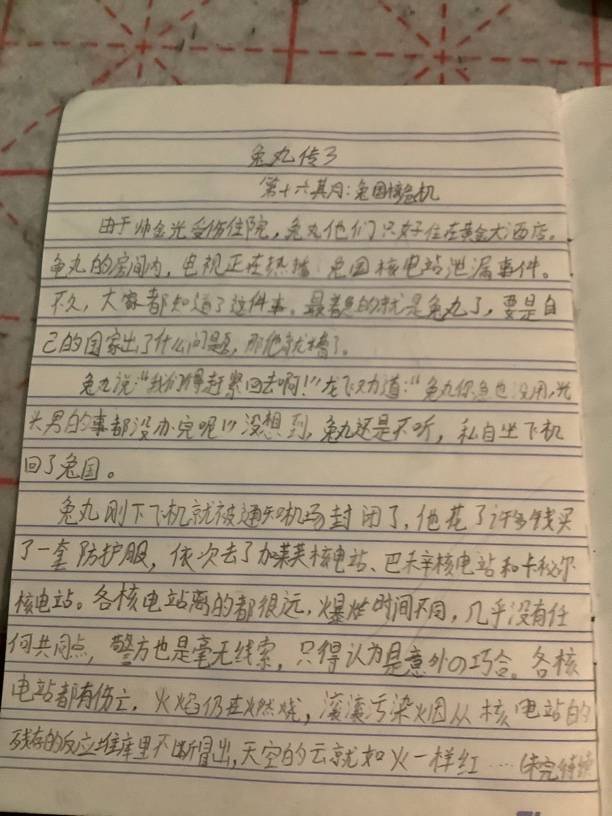 兔丸传3
第十六其月:兔国核危机
由于帅金光受伤住院,兔丸他们只好住在黄金大酒店。
兔丸的房间内,电视正在热播 兔国核电站泄漏事件。
不久,大家都知道了这件事。最着急的就是兔丸了,要是自
己的国家出了什么问题,那他就糟了。
兔丸说:“我们得赶紧回去啊!”龙飞劝道:“兔丸你急也没用,光
头男的事都没办完呢!”没想到,兔丸还是不听,私自坐飞机
回了兔国。
兔丸刚下飞机就被通知机场封闭了,他花了许多钱买
了一套防护服,依次去了加莱芙核电站、巴未辛核电站和卡秘尔
核电站。各核电站离的都很远,爆炸时间不同,几乎没有任
何共同点,警方也是毫无线索,只得认为是意外の巧合。各核
电站都有伤亡,火焰仍在燃烧,滚滚污染烟从核电站的
残存的反应堆库里不断冒出,天空的云就如火一样红……(未完待续